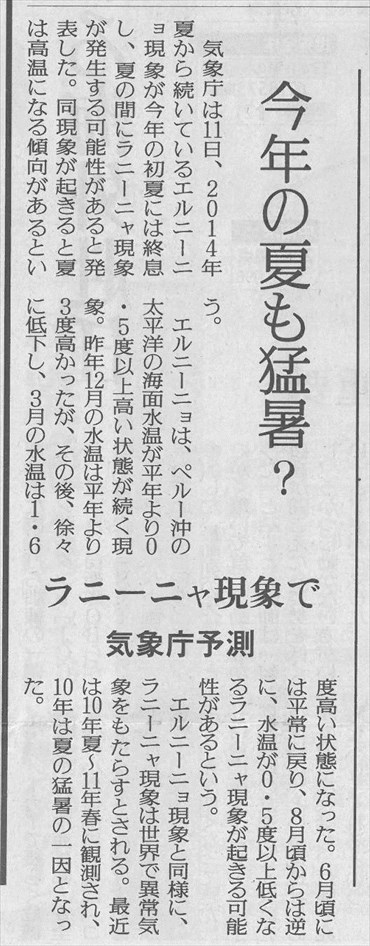 今年の夏も猛暑?
ラニーニャ現象で
気象庁予測
気象庁は11日、2014年
夏から続いているエルニーニ
ョ現象が今年の初夏には終息
し、夏の間にラニーニャ現象
が発生する可能性があると発
表した。同現象が起きると夏
は高温になる傾向があるとい
う。
エルニーニョは、ペルー沖の
太平洋の海面水温が平年より0
・5度以上高い状態が続く現
象。昨年12月の水温は平年より
3度高かったが、その後、徐々
に低下し、3月の水温は1・6
度高い状態になった。6月頃に
は平常に戻り、8月頃からは逆
に、水温が0・5度以上低くな
るラニーニャ現象が起きる可能
性があるという。
エルニーニョ現象と同様に、
ラニーニャ現象は世界で異常気
象をもたらすとされる。最近
は10年夏〜11年春に観測され、
10年は夏の猛暑の一因となっ
た。